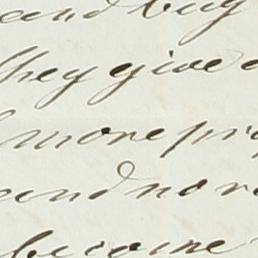 and buy
they give
more
and no
become